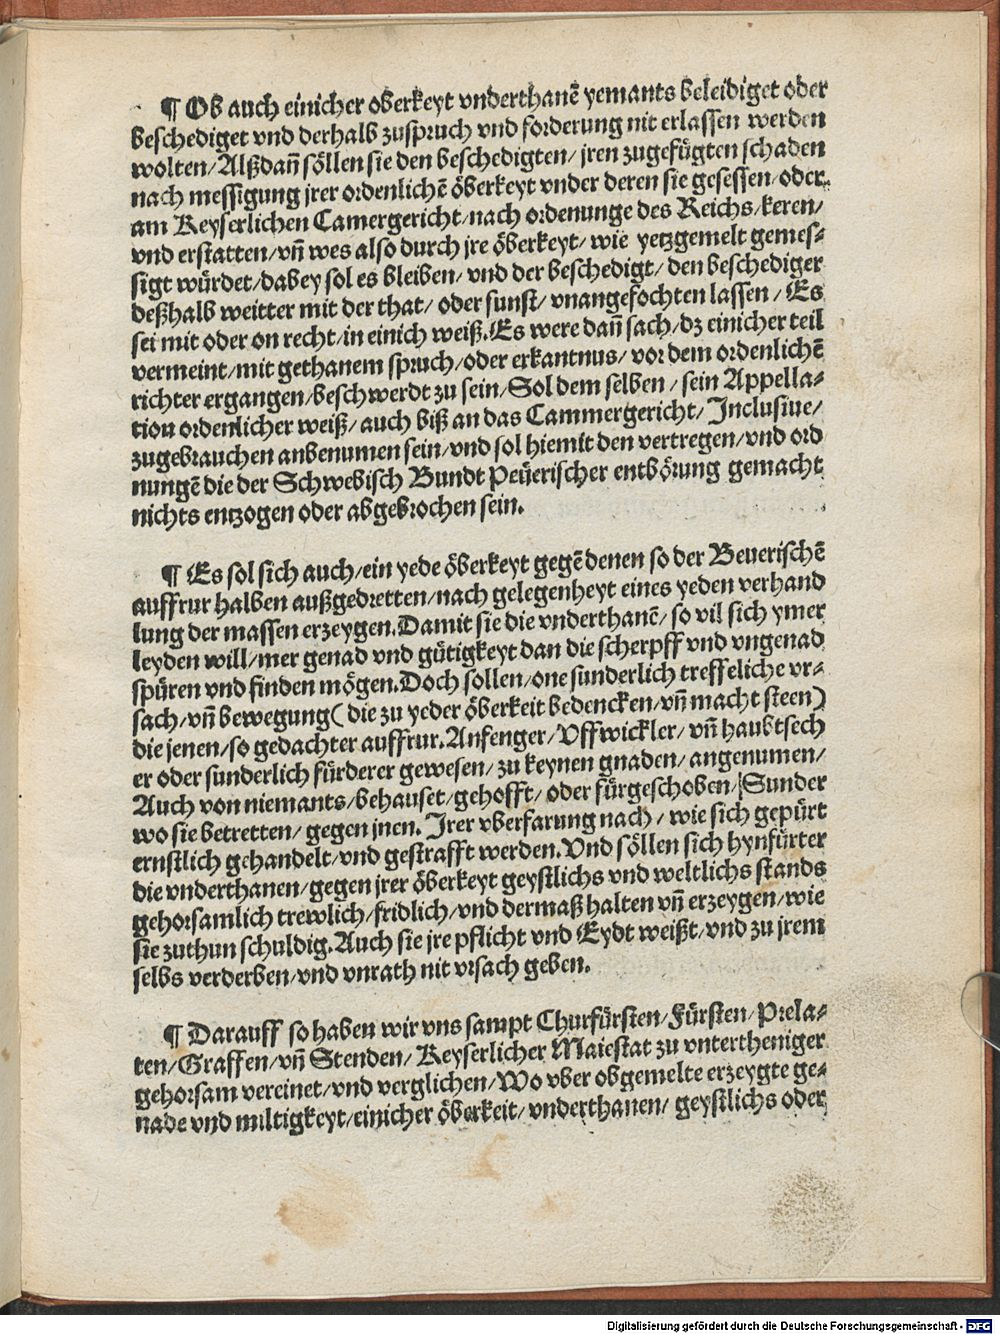 ¶ Ob auch einicher oberkeyt vnderthanē yemants beleidiget oder
beschediget vnd derhalb zuspruch vnd forderung nit erlassen werden
wolten/Alßdañ söllen sie den beschedigten/ jren zugefügten schaden
nach messigung jrer ordenlichē öberkeyt vnder deren sie gesessen/oder
am Keyserlichen Camergericht/nach ordenunge des Reichs/keren/
vnd erstatten/vñ wes also durch jre öberkeyt/ wie yetzgemelt gemes-
sigt würdet/dabey sol es bleiben/ vnd der beschedigt/ den beschediger
deßhalb weitter mit der that/ oder sunst/ vnangefochten lassen/ Es
sei mit oder on recht/in einich weiß.Es were dañ sach/dz einicher teil
vermeint/mit gethanem spruch/oder erkantnus/ vor dem ordenlichē
richter ergangen/beschwerdt zu sein/Sol dem selben/ sein Appella-
tion ordenlicher weiß/ auch biß an das Cammergericht/ Inclusiue/
zugebrauchen anbenumen sein/vnd sol hiemit den vertregen/vnd ord
nungē die der Schwebisch Bundt Peüerischer entbörung gemacht
nichts entzogen oder abgebrochen sein.
¶ Es sol sich auch/ein yede öberkeyt gegē denen so der Beuerischē
auffrur halben außgedretten/nach gelegenheyt eines yeden verhand
lung der massen erzeygen.Damit sie die vnderthanē/ so vil sich ymer
leyden will/mer genad vnd gütigkeyt dan die scherpff vnd vngenad
spüren vnd finden mögen.Doch sollen/one sunderlich treffeliche vr-
sach/vñ bewegung(die zu yeder öberkeit bedencken/vñ macht steen)
die jenen/so gedachter auffrur.Anfenger/Vffwickler/ vñ haubtsech
er oder sunderlich fürderer gewesen/zu keynen gnaden/angenumen/
Auch von niemants/behauset/gehofft/ oder fürgeschoben/Sunder
wo sie betretten/ gegen jnen. Irer vberfarung nach/ wie sich gepürt
ernstlich gehandelt/vnd gestrafft werden.Vnd söllen sich hynfürter
die vnderthanen/gegen jrer öberkeyt geystlichs vnd weltlichs stands
gehorsamlich trewlich/fridlich/vnd dermaß halten vñ erzeygen/wie
sie zuthun schuldig.Auch sie jre pflicht vnd Eydt weißt/vnd zu jrem
selbs verderben/vnd vnrath nit vrsach geben.
¶ Darauff so haben wir vns sampt Churfürsten/Fürsten/Prela-
ten/Graffen/vñ Stenden/Keyserlicher Maiestat zu vntertheniger
gehorsam vereinet/vnd verglichen/Wo vber obgemelte erzeygte ge-
nade vnd miltigkeyt/einicher öberkeit/vnderthanen/ geystlichs oder
Digitalisierung gefördert durch die Deutsche Forschungsgemeinschaft - DFG